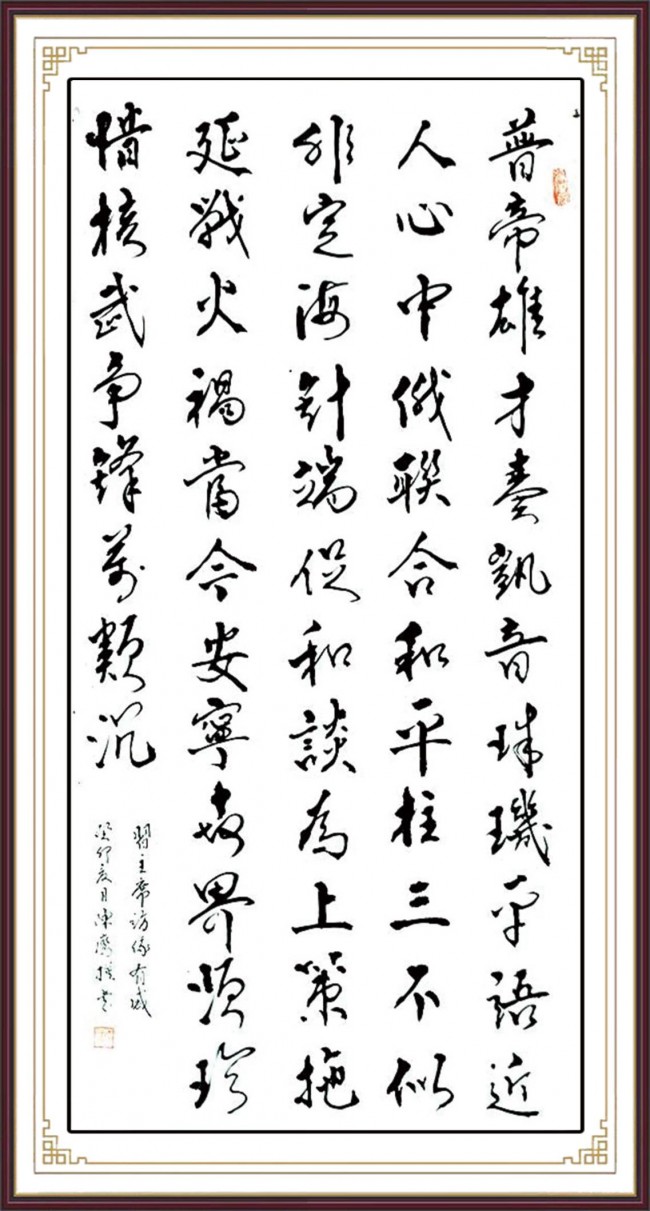 普帝雄才奏凱音珠璣平語近
人心中俄聯合和平柱三不似
非定海針端促和談為上策拖
延戰火禍當今安寧世界須珍
惜核武争鋒萬類沉
習主席訪俄有感
癸卯夏月陳鷹撰書